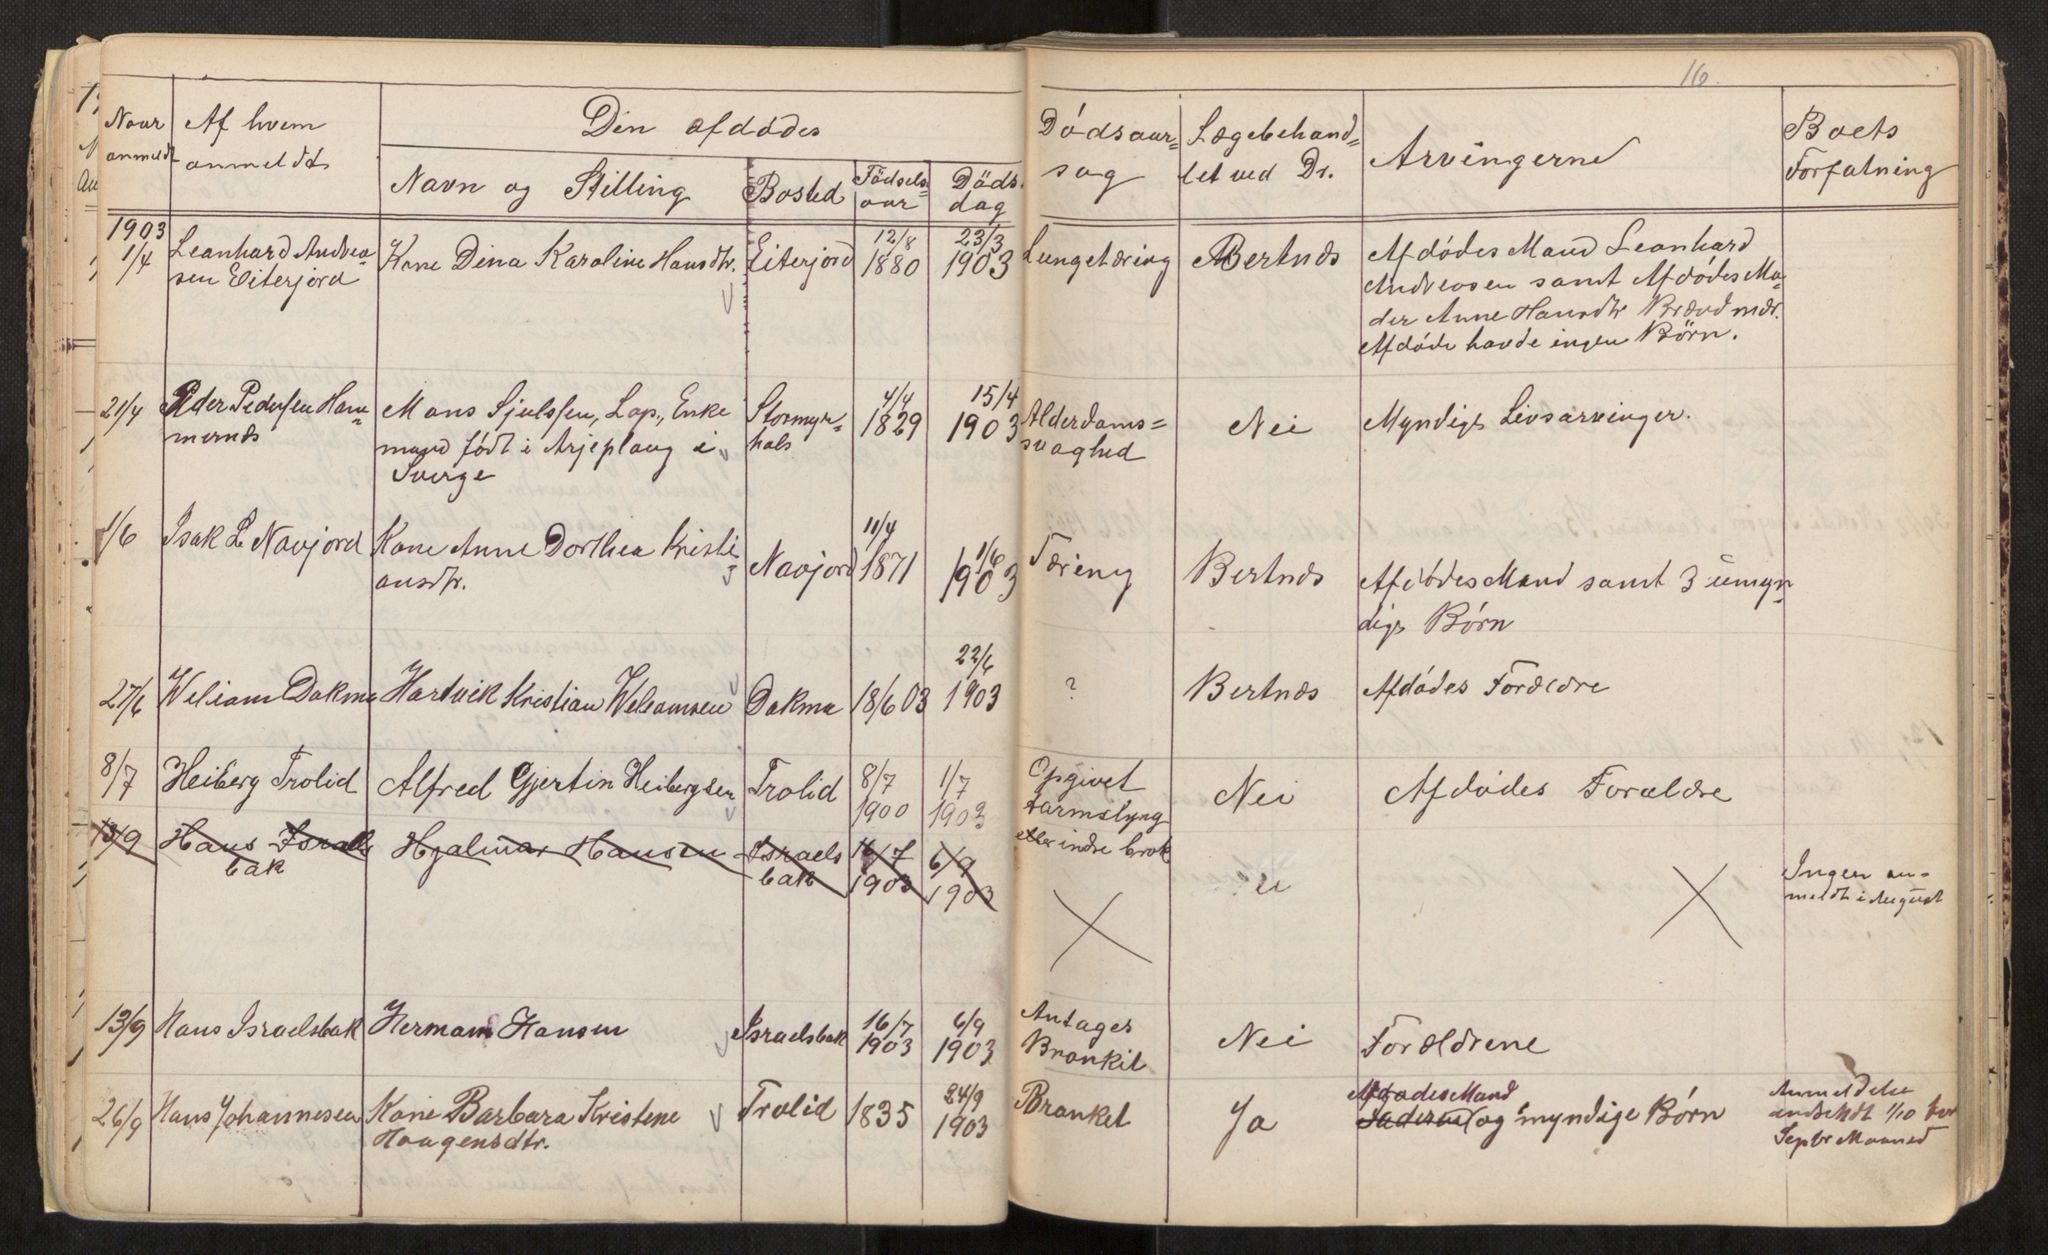 16.
Naar anmeldt
Af hvem anmeldt
Den afdødes
Navn og Stilling
Bosted
Fødsels=aar
Døds dag
Dødsaar=sag
Lægebehand=let ved Dr.
Arvingerne
Boets Forfatning
1903
1/4
Leonhard Andrea=
sen Eiterjord
Kone Dina Karoline Hansdtr.
Eiterjord
12/8
1880
23/3
1903
Lungetæring
Bertnæs
Afdødes Mand Leonhard
Andreasen samt Afdødes Mo=
der Anne Hansdtr
Afdøde havde ingen Børn.
21/4
Peder Pedersen Ham=
mernæs
Mons Sjulssen, Lap, Enke
mand født i Arjeplaug i
Sverge
Stormyr=
hals
4/4
1829
15/4
1903
Alderdoms=
svaghed
Nei
Myndige Livsarvinger.
1/6
Isak L Navjord
Kone Anne Dorthea Kristi=
ansdtr.
Navjord
11/4
1871
1/6
1903
Tæring
Bertnæs
Afdødes Mand samt 3 umyn=
dige Børn
27/6
Weliam Dakma
Hartvik Kristian Weliamsen
Dakma
18/6 03
22/6
1903
?
Bertnæs
Afdødes Forældre
8/7
Heiberg Trolid
Alfred Gjertin Heibergsen
Trolid
8/7
1900
1/7
1903
Opgivet
tarmslyng
eller indre brok
Nei
Afdødes Forældre
13/9
Hans Israels
bak
Hjalmar Hansen
Israels
bak
16/7
1903
6/9
1903
Ingen an=
meldt i August
13/9
Hans Israelsbak
Herman Hansen
Israelsbak
16/7
1903
6/9
1903
Antages
Bronkit
Nei
Forældrene
26/9
Hans Johannesen
Kone Barbara Kristene
Haagensdtr.
Trolid
1835
24/9
1903
Bronket
Ja
Afdødes Mand
Faderen og myndige Børn
Anmeldelse
indsendt 1/10 for
Septbr Maaned